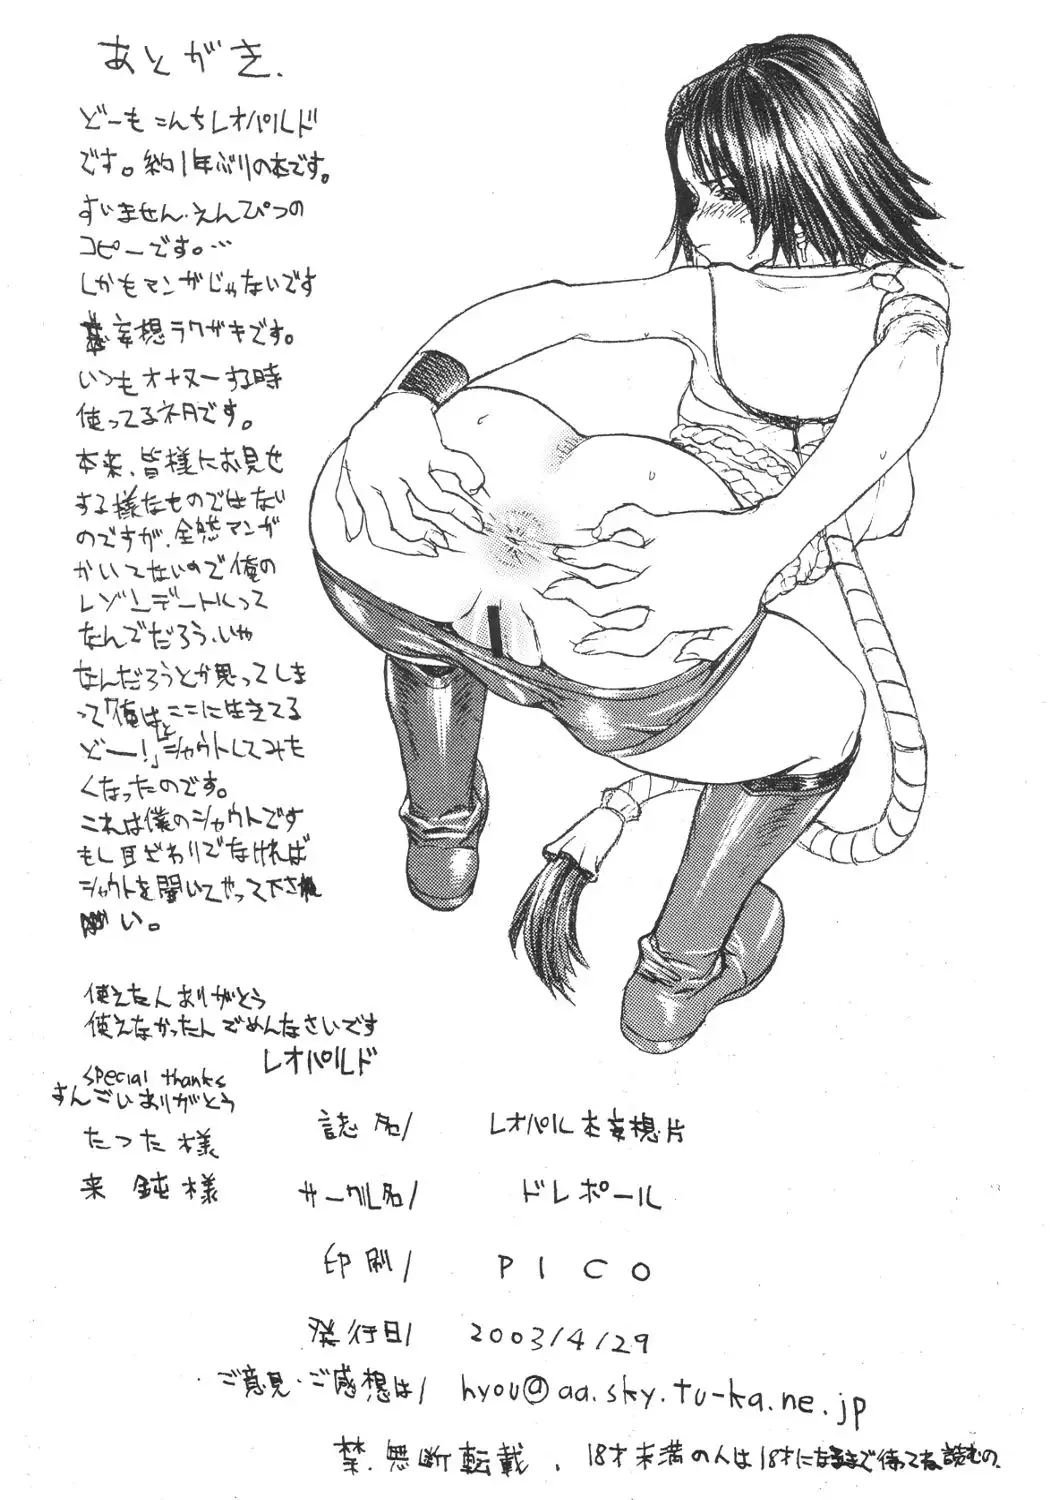 あとがき.
どーもこんちレオパルド
です。約1年ぶりの本です。
すいません.えんぴつの
コピーです。…
しかもマンガじゃないです
妄想ラクガキです。
いつもオナヌーする時
使ってるネタです。
本来、皆様にお見せ
する様なものではない
のですが、全然マンガ
かいてないので俺の
レゾンデートルって
なんでだろう.いや
なんだろうとか思ってしま
って「俺はここに生きてる
どー!」とシャウトしてみた
くなったのです。
これは僕のシャウトです
もし耳ざわりでなければ
シャウトを聞いてやって下され
い。
使えたんありがとう
使えなかったんでめんなさいです
レオパルド
special thanks
すんごいありがとう
たつた様
来鈍様
誌名/ レオパル本妄想片
サークル名/ ドレポール
印刷/ PICO
発行日/ 2003/4/29
ご意見・ご感想は/ hyou@aa.sky.tu-ka.ne.jp
禁.無断転載. 18才未満の人は18才になるまで待ってね読むの.